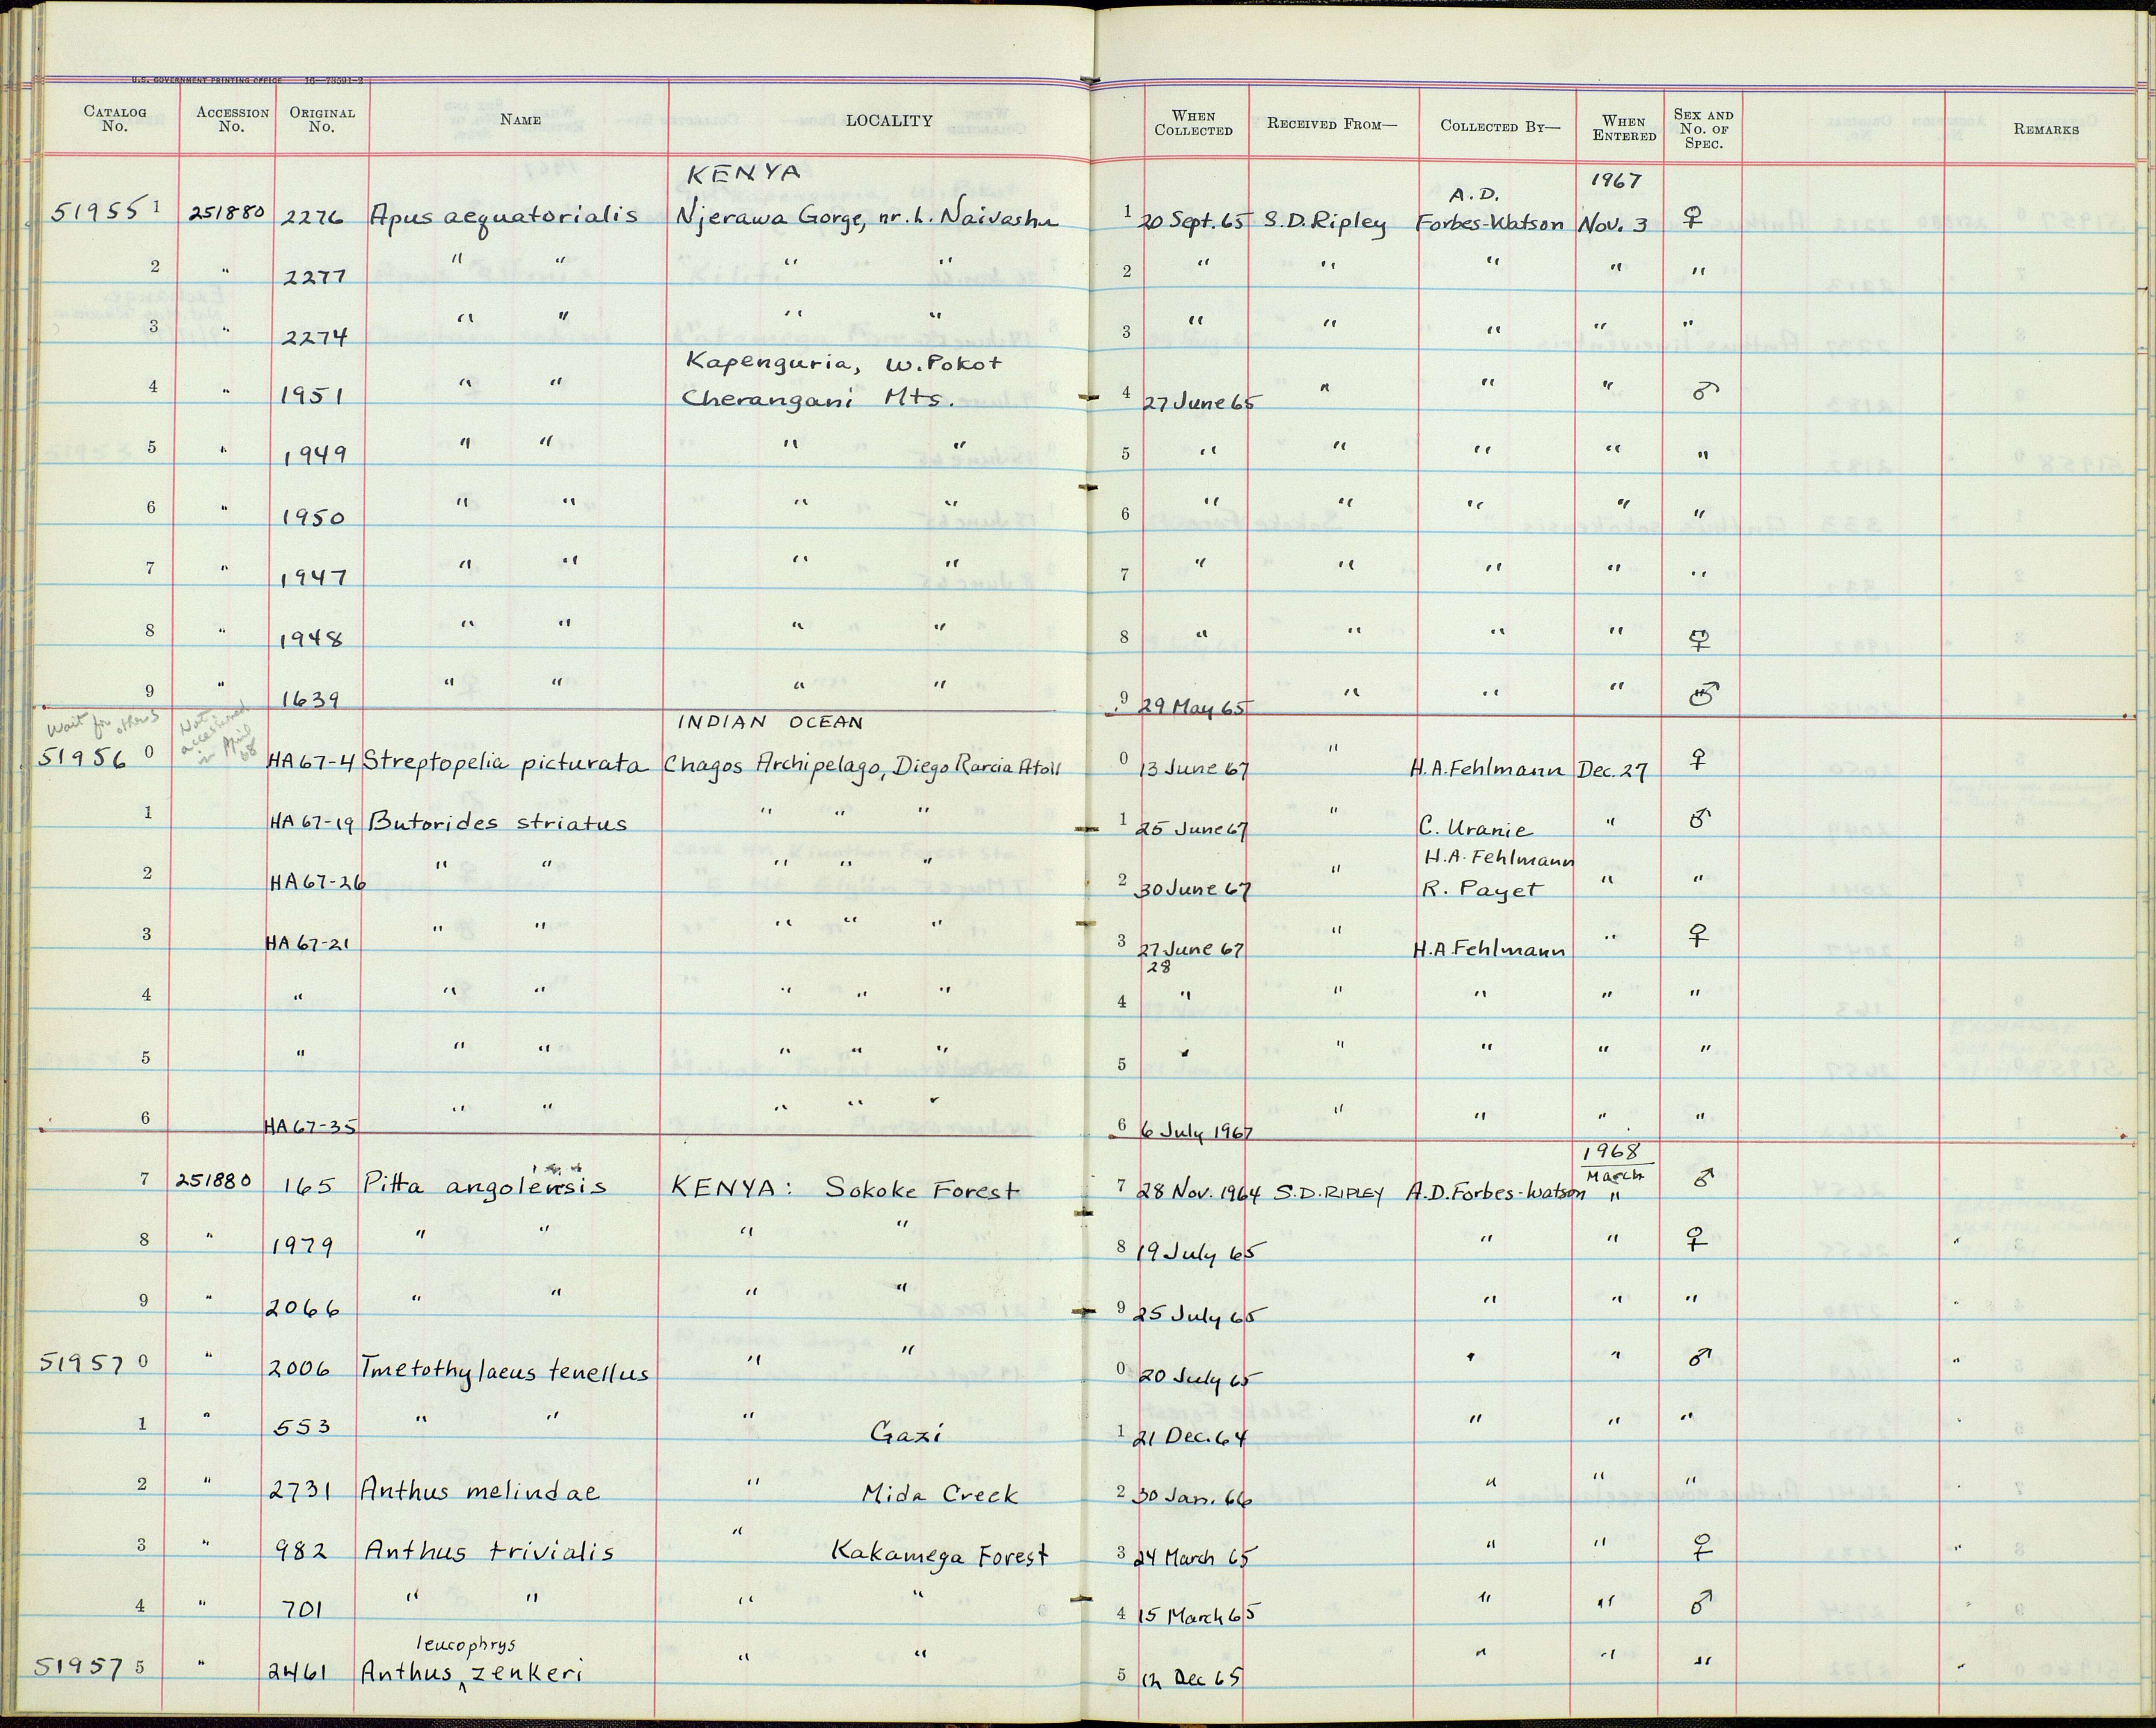 U.S. GOVERNMENT PRINTING OFFICE 16—73591-2
CATALOG No. ACCESSION No. ORIGINAL No. NAME LOCALITY WHEN COLLECTED RECEIVED FROM— COLLECTED BY— WHEN ENTERED SEX AND No. OF SPEC. REMARKS
KENYA 1967
A.D.
519551 251880 2276 Apus aequatorialis Njerawa Gorge, nr. L. Naivasha 1 20 Sept. 65 S.D. Ripley Forbes-Watson Nov. 3 ♀
2 " 2277 " " " " 2 " " " " "
3 " 2274 " " " " 3 " " " " "
Kapenguria, W. Pokot
4 " 1951 " " Cherangani Mts. 4 27 June 65 " " " ♂
5 " 1949 " " " " 5 " " " " "
6 " 1950 " " " " 6 " " " " "
7 " 1947 " " " " 7 " " " " "
8 " 1948 " " " " 8 " " " " ♀
9 " 1639 " " " " 9 29 May 65 " " " ♂
Wait for others Not accessioned in April 68 INDIAN OCEAN
519560 HA 67-4 Streptopelia picturata Chagos Archipelago, Diego Rarcia Atoll 0 13 June 67 " H.A. Fehlmann Dec. 27 ♀
1 HA 67-19 Butorides striatus " " " 1 25 June 67 " C. Uranie " ♂
H.A. Fehlmann
2 HA 67-26 " " " " " 2 30 June 67 " R. Payet " "
3 HA 67-21 " " " " " 3 27 June 67 " H.A. Fehlmann " ♀
28
4 " " " " " " 4 " " " " "
5 " " " " " " 5 " " " " "
6 HA 67-35 " " " " " 6 6 July 1967 " " " "
1968
March
7 251880 165 Pitta angolensis KENYA: Sokoke Forest 7 28 Nov. 1964 S.D. RIPLEY A.D. Forbes-Watson " ♂
8 " 1979 " " " " 8 19 July 65 " " ♀
9 " 2066 " " " " 9 25 July 65 " " "
519570 " 2006 Tmetothylacus tenellus " " 0 20 July 65 " " ♂
1 " 553 " " " Gazi 1 21 Dec. 64 " " "
2 " 2731 Anthus melindae " Mida Creek 2 30 Jan. 66 " " "
3 " 982 Anthus trivialis " Kakamega Forest 3 24 March 65 " " ♀
4 " 701 " " " " 4 15 March 65 " " ♂
leucophrys
519575 " 2461 Anthus ^ zenkeri " " 5 12 Dec 65 " " "